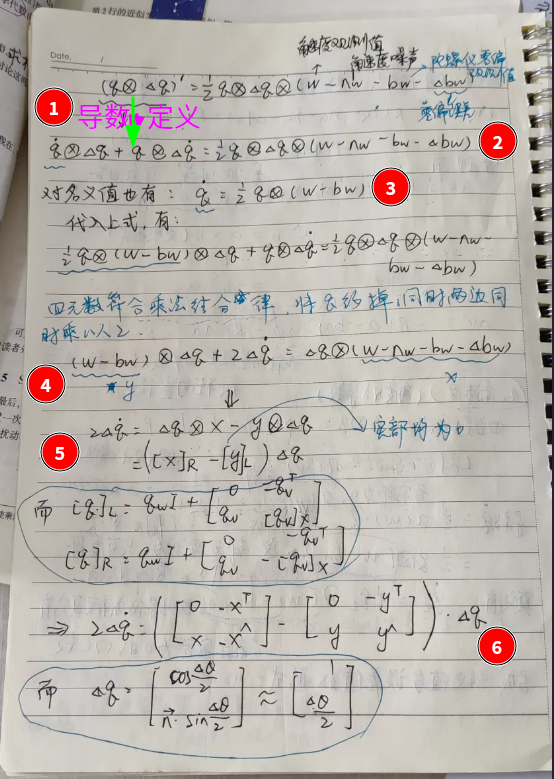 第2行的近似
Date.
角速度观测值
角速度噪声
陀螺仪零偏
观测值
(q⊗Δq)' = ½ q⊗Δq⊗(w - nw - bw - Δbw)
1
导数 定义
q̇⊗Δq + q⊗Δq̇ = ½ q⊗Δq⊗(w - nw - bw - Δbw)
2
对名义值也有: q̇ = ½ q⊗(w - bw)
3
代入上式,有:
½ q⊗(w - bw)⊗Δq + q⊗Δq̇ = ½ q⊗Δq⊗(w - nw -
bw - Δbw)
四元数符合乘法结合律,将q约掉,同时两边同
时乘以2
(w - bw)⊗Δq + 2Δq̇ = Δq⊗(w - nw - bw - Δbw)
4
y
x
⇓
2Δq̇ = Δq⊗x - y⊗Δq
实部均为0
5
= ([x]R - [y]L) Δq
而 [q]L = qwI + [0 -qvᵀ
qv [qv]x]
[q]R = qwI + [0 -qvᵀ
qv -[qv]x]
⇒ 2Δq̇ = ([0 -xᵀ
x -x^] - [0 -yᵀ
y y^]) · Δq
6
而 Δq = [cos Δθ/2
n⃗ · sin Δθ/2] ≈ [1
Δθ/2]